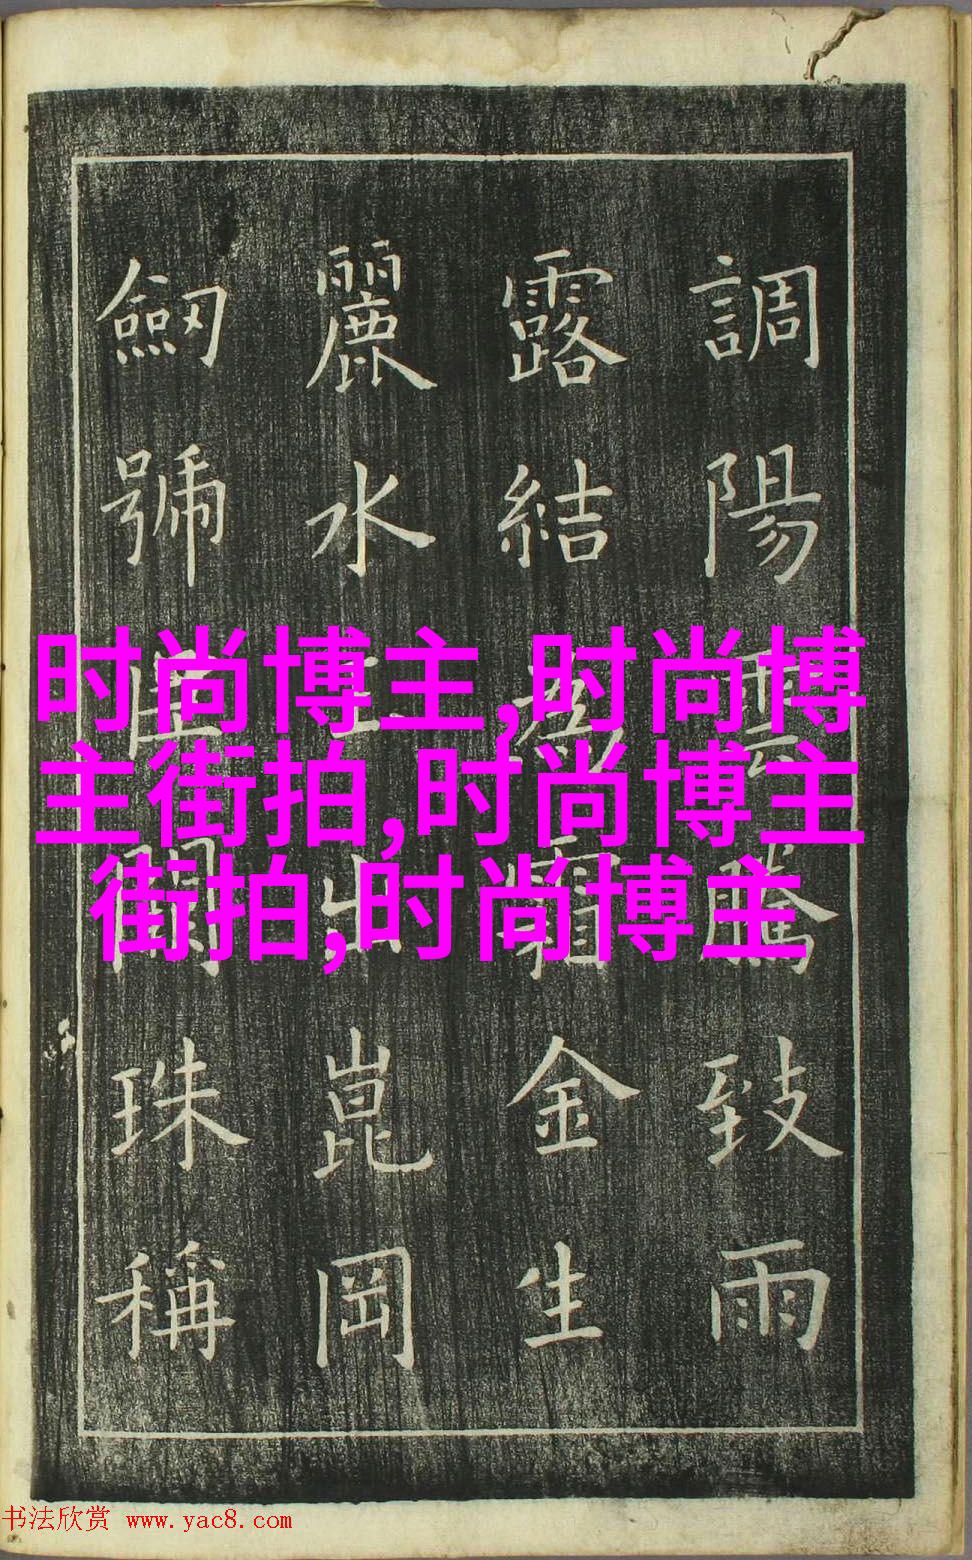 調陽雲騰致雨
露結為霜金生
麗水出崑岡
劒號闕珠稱
时尚博主,时尚博
主街拍,时尚博主
街拍,时尚博主
书法欣赏 www.yac8.com